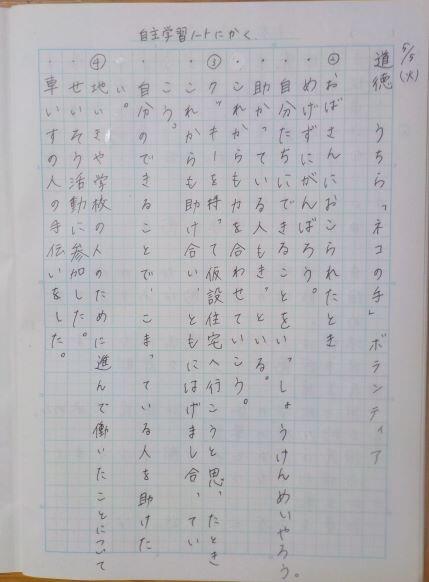 自主学習ノートにかく
5/5(火)
道徳 うちら「ネコの手」ボランティア
②おばさんにおこられたとき
めげずにがんばろう。
自分たちにできることをいっしょうけんめいやろう。
助かっている人もきっといる。
これからも力を合わせていこう。
③クッキーを持って仮設住宅へ行こうと思ったとき
これからも助け合い、ともにはげまし合ってい
こう。
自分のできることで、こまっている人を助けた
い。
④地いきや学校の人のために進んで働いたことについて
せいそう活動に参加した。
車いすの人の手伝いをした。